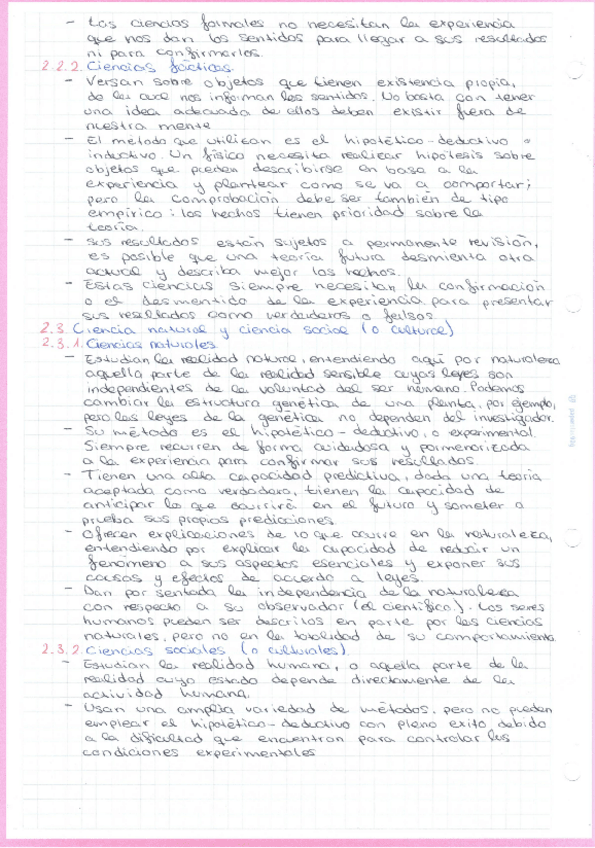 - Las ciencias formales no necesitan la experiencia
que nos dan los sentidos para llegar a sus resultados
ni para confirmarlos.
2.2.2. Ciencias fácticas.
- Versan sobre objetos que tienen existencia propia,
de la cual nos informan los sentidos. No basta con tener
una idea adecuada de ellos deben existir fuera de
nuestra mente
- El método que utilizan es el hipotético-deductivo o
inductivo. Un físico necesita realizar hipótesis sobre
objetos que pueden describirse en base a la
experiencia y plantear como se va a comportar;
pero la comprobación debe ser también de tipo
empírico: los hechos tienen prioridad sobre la
teoría.
- Sus resultados están sujetos a permanente revisión,
es posible que una teoría futura desmienta otra
actual y describa mejor los hechos.
- Estas ciencias siempre necesitan la confirmación
o el desmentido de la experiencia para presentar
sus resultados como verdaderos o falsos.
2.3. Ciencia natural y ciencia social (o cultural)
2.3.1. Ciencias naturales
- Estudian la realidad natural, entendiendo aquí por naturaleza
aquella parte de la realidad sensible cuyas leyes son
independientes de la voluntad del ser humano. Podemos
cambiar la estructura genética de una planta, por ejemplo,
pero las leyes de la genética no dependen del investigador.
- Su método es el hipotético-deductivo, o experimental.
Siempre recurren de forma cuidadosa y pormenorizada
a la experiencia para confirmar sus resultados.
- Tienen una alta capacidad predictiva, dada una teoría
aceptada como verdadera, tienen la capacidad de
anticipar lo que ocurrirá en el futuro y someter a
prueba sus propias predicciones.
- Ofrecen explicaciones de lo que ocurre en la naturaleza,
entendiendo por explicar la capacidad de reducir un
fenómeno a sus aspectos esenciales y exponer sus
causas y efectos de acuerdo a leyes.
- Dan por sentada la independencia de la naturaleza
con respecto a su observador (el científico). Los seres
humanos pueden ser descritos en parte por las ciencias
naturales, pero no en la totalidad de su comportamiento.
2.3.2. Ciencias sociales (o culturales)
- Estudian la realidad humana, o aquella parte de la
realidad cuyo estado depende directamente de la
actividad humana.
- Usan una amplia variedad de métodos, pero no pueden
emplear el hipotético-deductivo con pleno exito debido
a la dificultad que encuentran para controlar las
condiciones experimentales